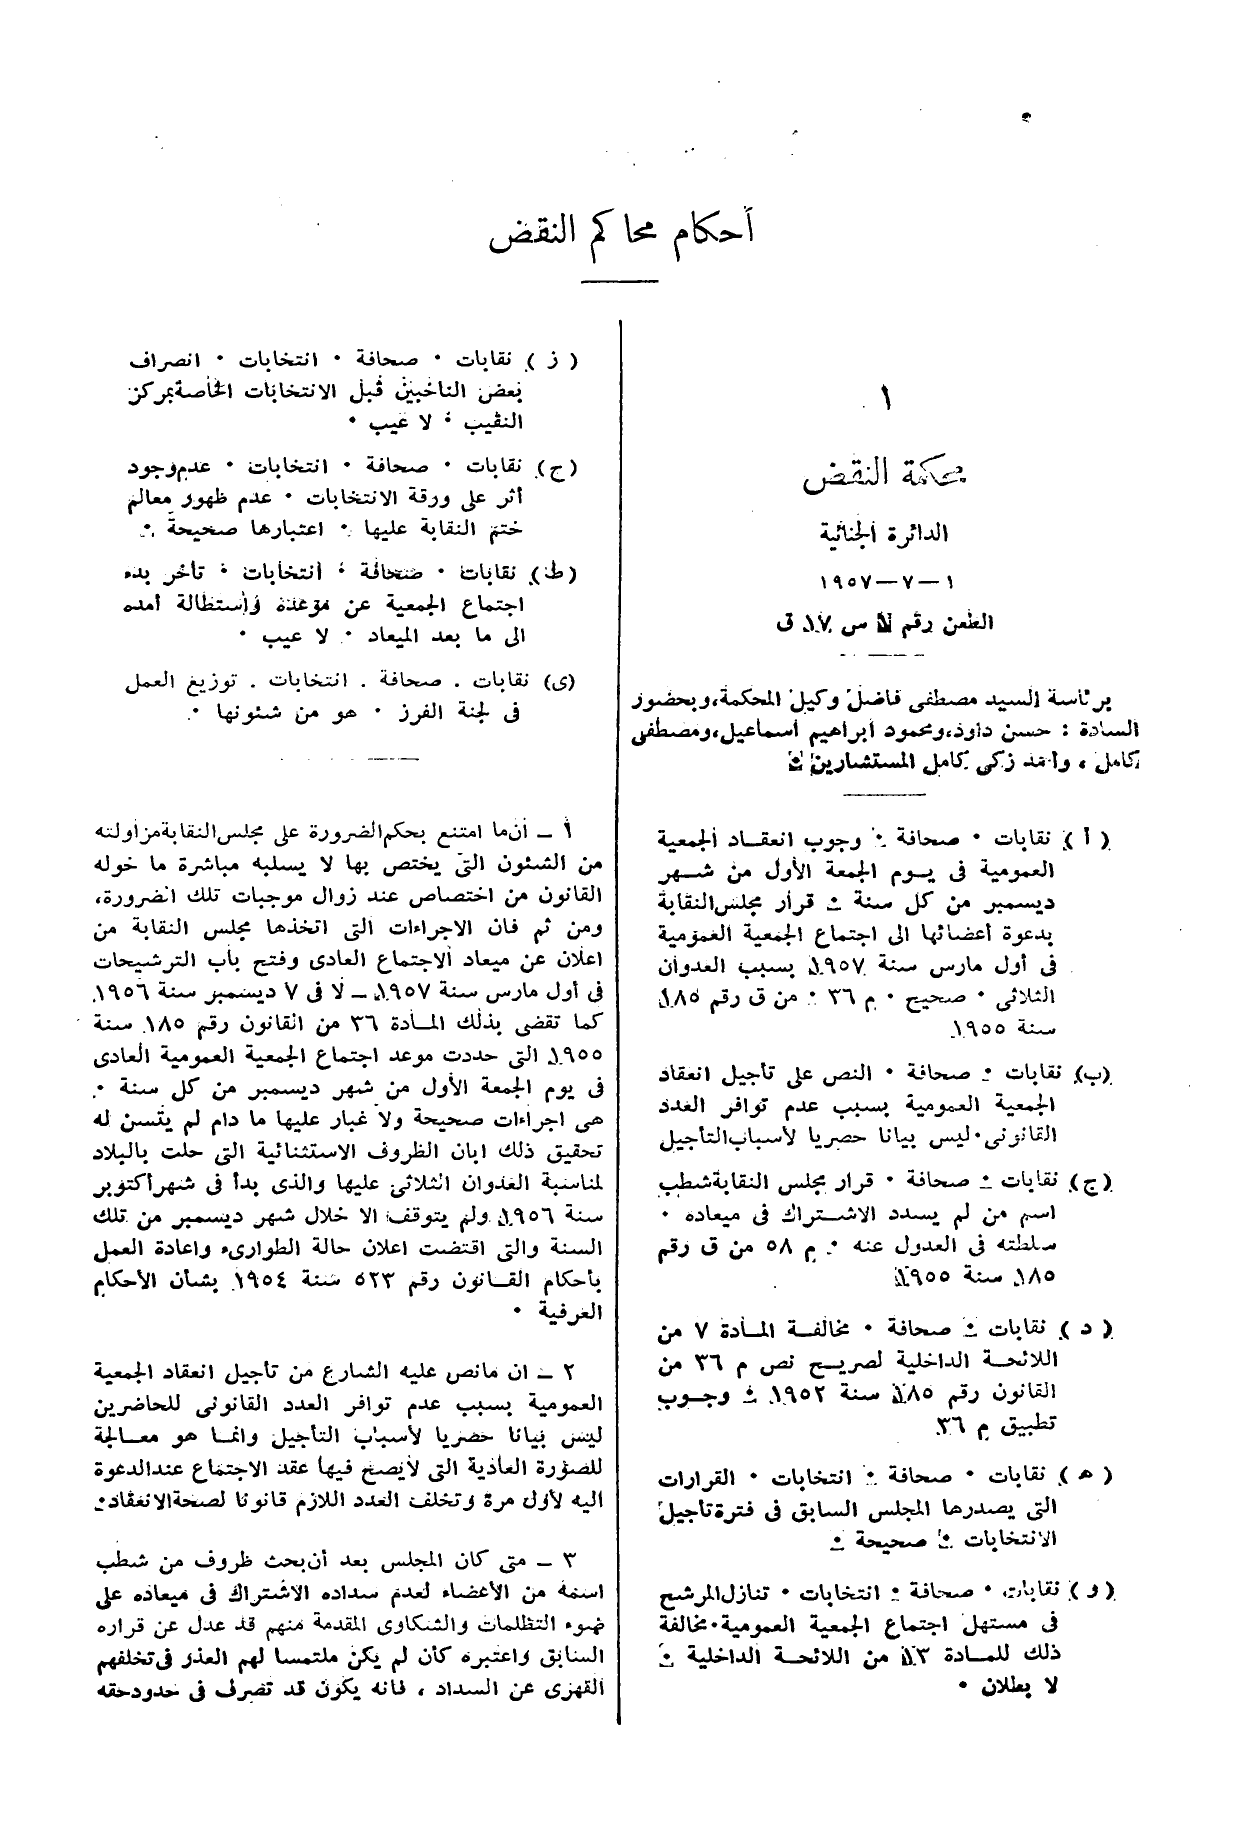 أحكام محاكم النقض
١
محكمة النقض
الدائرة الجنائية
١-٧-١٩٥٧
الطعن رقم س ١٧ ق
برئاسة السيد مصطفى فاضل وكيل المحكمة، وبحضور
السادة : حسن داود، ومحمود ابراهيم اسماعيل، ومصطفى
كامل ، واحمد زكى كامل المستشارين .
( أ ) نقابات . صحافة . وجوب انعقاد الجمعية
العمومية فى يوم الجمعة الأول من شهر
ديسمبر من كل سنة . قرار مجلس النقابة
بدعوة أعضائها الى اجتماع الجمعية العمومية
فى أول مارس سنة ١٩٥٧ بسبب العدوان
الثلاثى . صحيح . م ٣٦ . من ق رقم ١٨٥
سنة ١٩٥٥
(ب) نقابات . صحافة . النص على تأجيل انعقاد
الجمعية العمومية بسبب عدم توافر العدد
القانونى . ليس بيانا حصريا لأسباب التأجيل
(ج) نقابات . صحافة . قرار مجلس النقابة شطب
اسم من لم يسدد الاشتراك فى ميعاده .
سلطته فى العدول عنه . م ٥٨ من ق رقم
١٨٥ سنة ١٩٥٥
( د ) نقابات . صحافة . مخالفة المادة ٧ من
اللائحة الداخلية لصريح نص م ٣٦ من
القانون رقم ١٨٥ سنة ١٩٥٢ . وجوب
تطبيق م ٣٦
( ه ) نقابات . صحافة . انتخابات . القرارات
التى يصدرها المجلس السابق فى فترة تأجيل
الانتخابات . صحيحة .
( و ) نقابات . صحافة . انتخابات . تنازل المرشح
فى مستهل اجتماع الجمعية العمومية . مخالفة
ذلك للمادة ١٣ من اللائحة الداخلية .
لا بطلان .
( ز ) نقابات . صحافة . انتخابات . انصراف
بعض الناخبين قبل الانتخابات الخاصة بمركز
النقيب . لا عيب .
(ح) نقابات . صحافة . انتخابات . عدم وجود
أثر على ورقة الانتخابات . عدم ظهور معالم
ختم النقابة عليها . اعتبارها صحيحة .
(ط) نقابات . صحافة . انتخابات . تأخر بدء
اجتماع الجمعية عن موعده واستطالة أمده
الى ما بعد الميعاد . لا عيب .
(ى) نقابات . صحافة . انتخابات . توزيع العمل
فى لجنة الفرز . هو من شئونها .
١ – أن ما امتنع بحكم الضرورة على مجلس النقابة مزاولته
من الشئون التى يختص بها لا يسلبه مباشرة ما خوله
القانون من اختصاص عند زوال موجبات تلك الضرورة،
ومن ثم فان الاجراءات التى اتخذها مجلس النقابة من
اعلان عن ميعاد الاجتماع العادى وفتح باب الترشيحات
فى أول مارس سنة ١٩٥٧ – لا فى ٧ ديسمبر سنة ١٩٥٦
كما تقضى بذلك المادة ٣٦ من القانون رقم ١٨٥ سنة
١٩٥٥ التى حددت موعد اجتماع الجمعية العمومية العادى
فى يوم الجمعة الأول من شهر ديسمبر من كل سنة .
هى اجراءات صحيحة ولا غبار عليها ما دام لم يتسن له
تحقيق ذلك ابان الظروف الاستثنائية التى حلت بالبلاد
لمناسبة العدوان الثلاثى عليها والذى بدأ فى شهر أكتوبر
سنة ١٩٥٦ ولم يتوقف الا خلال شهر ديسمبر من تلك
السنة والتى اقتضت اعلان حالة الطوارىء واعادة العمل
بأحكام القانون رقم ٥٣٣ سنة ١٩٥٤ بشأن الأحكام
العرفية .
٢ – ان ما نص عليه الشارع من تأجيل انعقاد الجمعية
العمومية بسبب عدم توافر العدد القانونى للحاضرين
ليس بيانا حصريا لأسباب التأجيل وانما هو معالجة
للصورة العادية التى لا يصح فيها عقد الاجتماع عند الدعوة
اليه لأول مرة وتخلف العدد اللازم قانونا لصحة الانعقاد .
٣ – متى كان المجلس بعد أن بحث ظروف من شطب
اسمه من الأعضاء لعدم سداده الاشتراك فى ميعاده على
ضوء التظلمات والشكاوى المقدمة منهم قد عدل عن قراره
السابق واعتبره كأن لم يكن ملتمسا لهم العذر فى تخلفهم
القهرى عن السداد ، فانه يكون قد تصرف فى حدود حقه